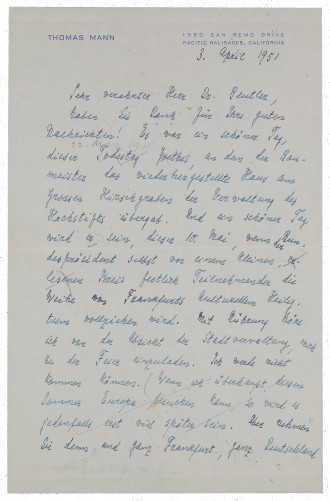 THOMAS MANN
1550 SAN REMO DRIVE
PACIFIC PALISADES, CALIFORNIA
3. April 1951
Sehr verehrter Herr Dr. Beutler,
haben Sie Dank für Ihre guten
Nachrichten! Es war ein schöner Tag,
dieser Todestag Goethes, an dem der Bau-
meister das wiederhergestellte Haus am
Grossen Hirschgraben der Verwaltung des
Hochstifts übergab. Und ein schöner Tag
wird es sein, dieser 10. Mai, wenn der Bun-
despräsident selbst vor einem kleinen,
Kreis festlich Teilnehmender die
Weihe von Frankfurts kulturellem Heilig-
tum vollziehen wird. Mit Rührung höre
ich von der Absicht der Stadtverwaltung, mich
zu der Feier einzuladen. Ich werde nicht
kommen können. (Wenn ich überhaupt diesen
Sommer Europa besuchen kann, so wird es
jedenfalls erst viel später sein. Aber nehmen
Sie denn, und ganz Frankfurt, ganz Deutschland